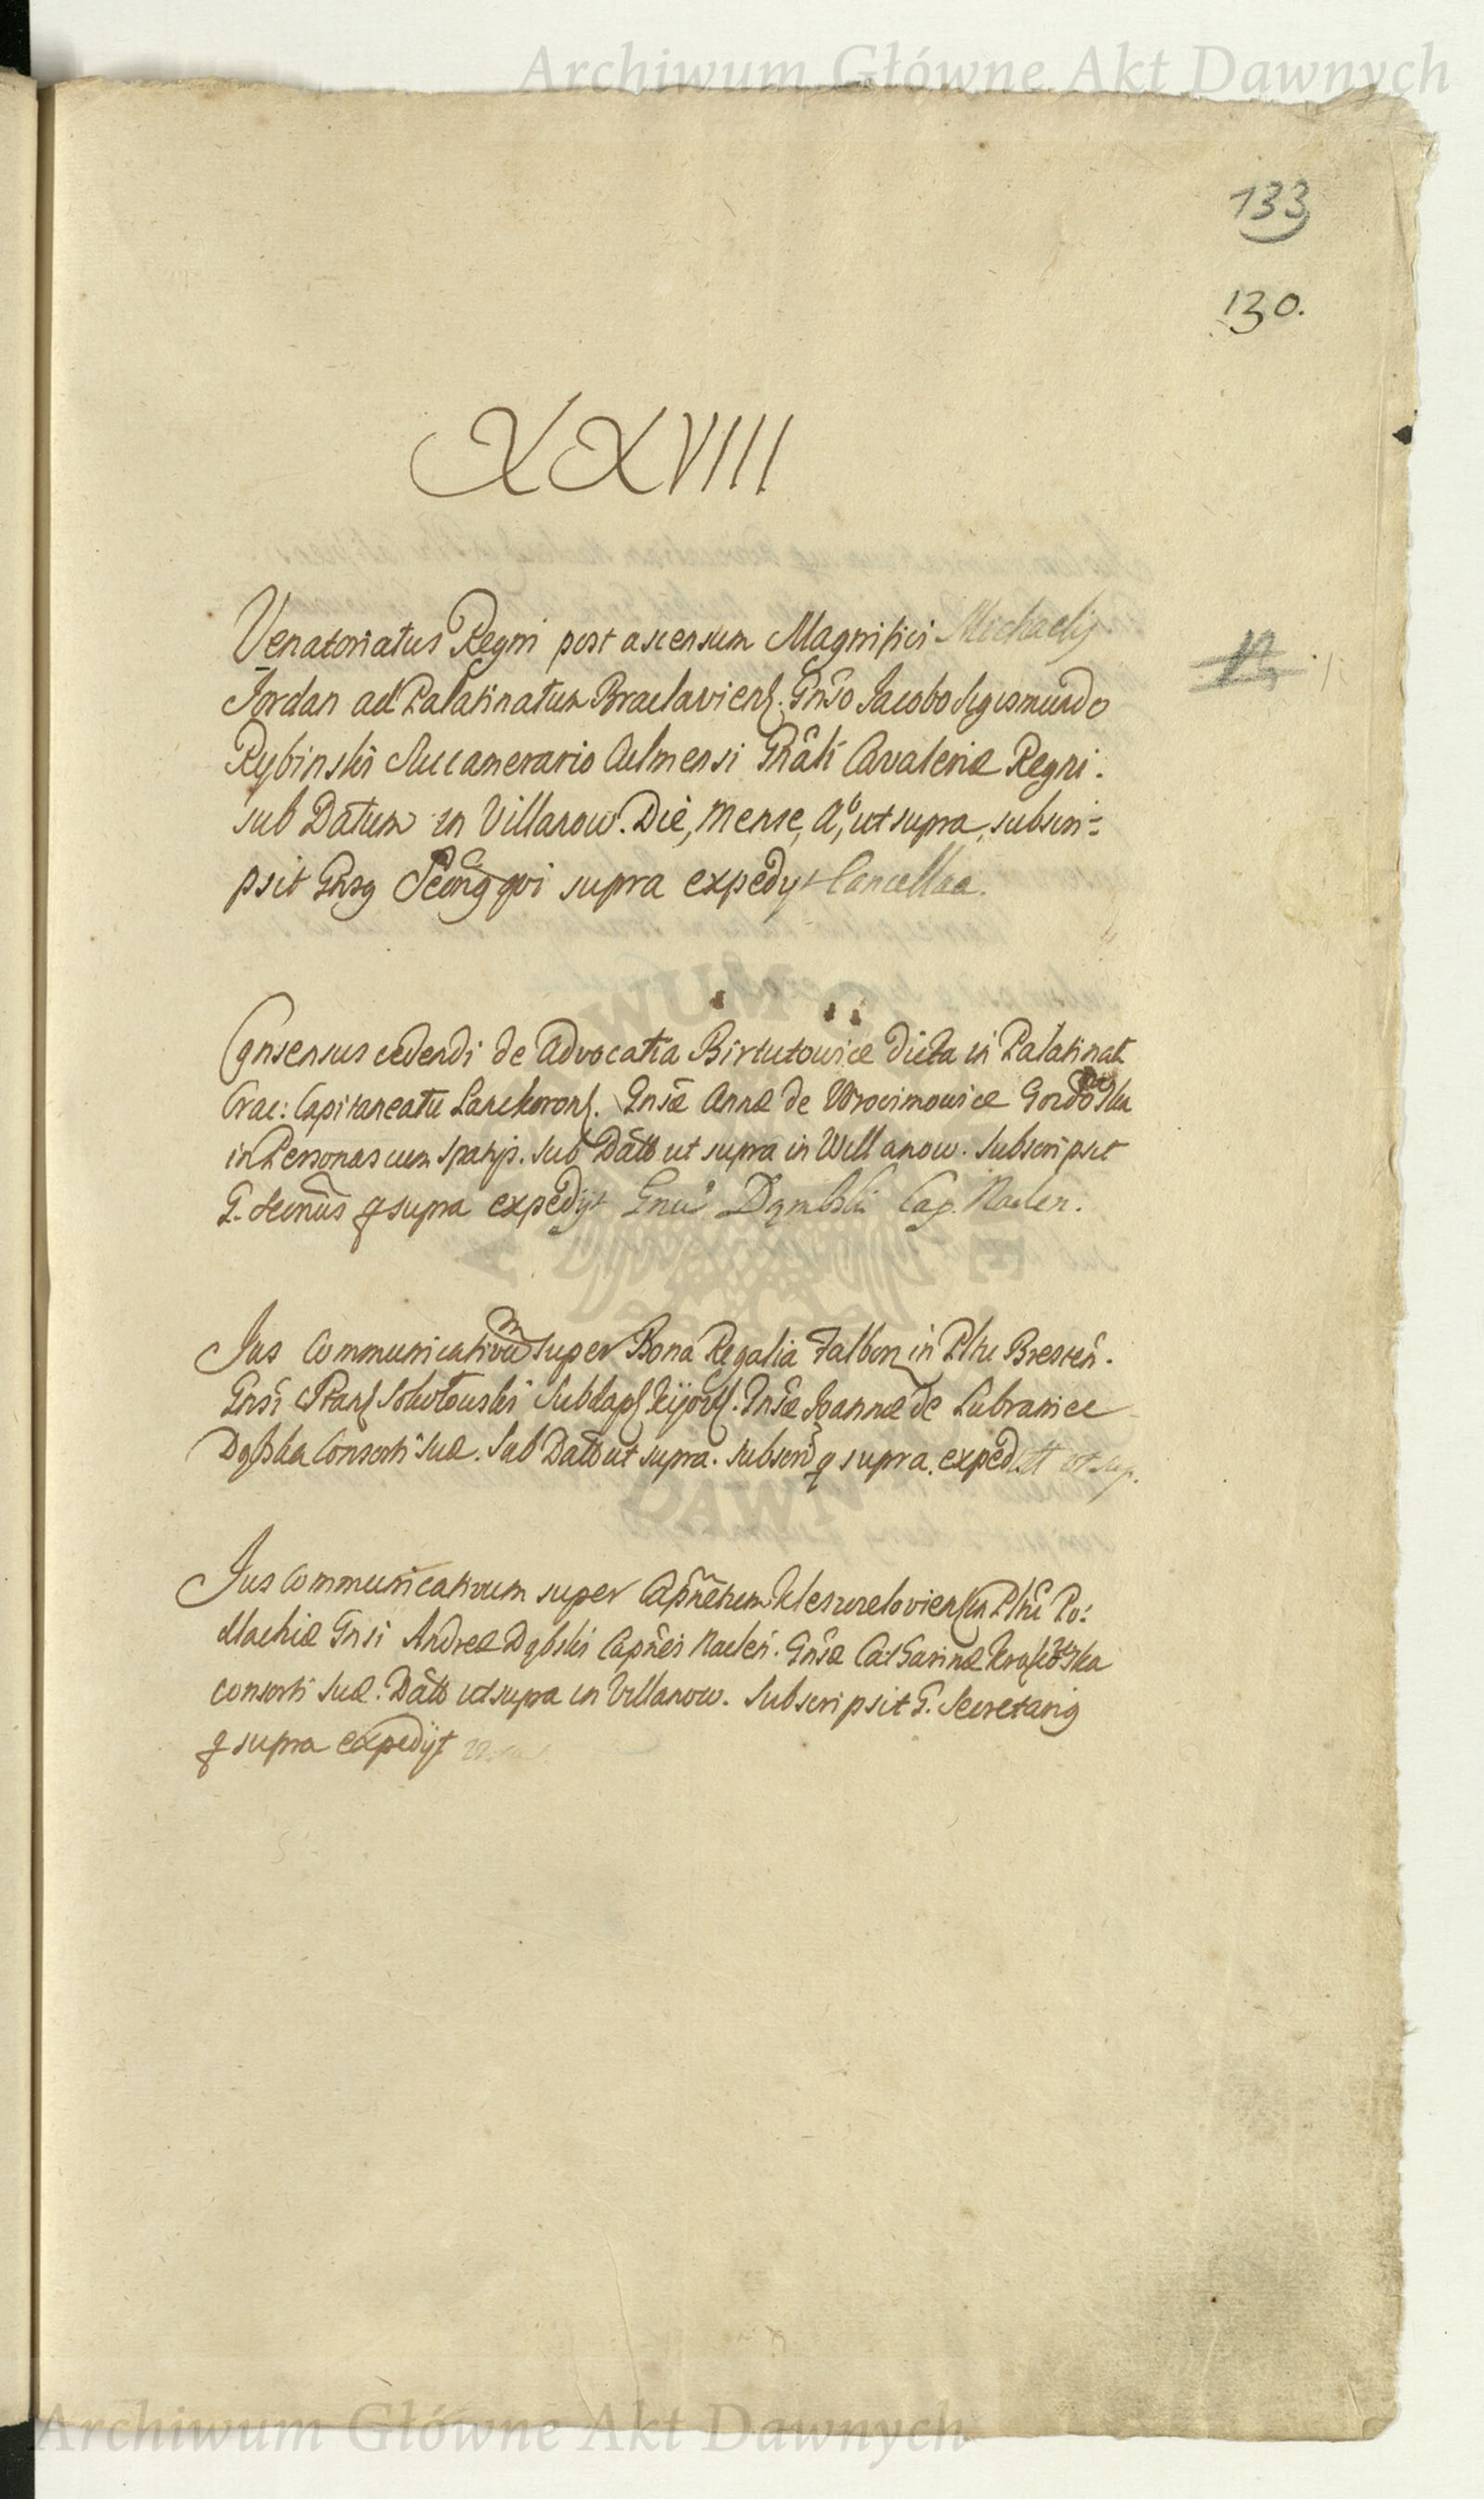 Archiwum Główne Akt Dawnych
133
130.
XXVIII
Venatoriatus Regni post ascensum Magnifici Michaelis
Jordan ad Palatinatum Braclaviens. Gnso Jacobo Sigismundo
Rybinski Succamerario Culmensi Gnāli Cavaleriæ Regni.
sub Datum in Villanow. Die, Mense, Aº, ut supra, subscri=
psit qui supra expedyt Cancellar.
Consensus cedendi de Advocatia Birtutowice dicta in Palatinat
Crac: Capitaneatu Lanckorons. Gnsæ Annæ de Wrocimowice
in Personas cum spatijs. sub Datto ut supra in Willanow. Subscripsit
G. q supra expedijt Dąmbski Cap. Naclen.
Jus Communicativũ super Bona Regalia in Pltu Bresten.
Gnsi Sokołowski Subdapf Kijovs. Gnsæ Joannæ de Lubraniec
Dąbska Consorti suæ. Sub Datto ut supra. subscri q supra. exped ut sup.
Jus Communicativum super Capñetum in Pltu Po:
dlachiæ Gnsi Andreæ Dąbski Capñei Naclen. Gnsæ Catharinæ
consorti suæ. Datto ut supra in Villanow. Subscripsit G. Secretari9
q supra expedijt
Archiwum Główne Akt Dawnych